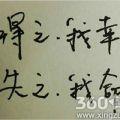 得之.我幸
失之.我命
360
www.xingzuo